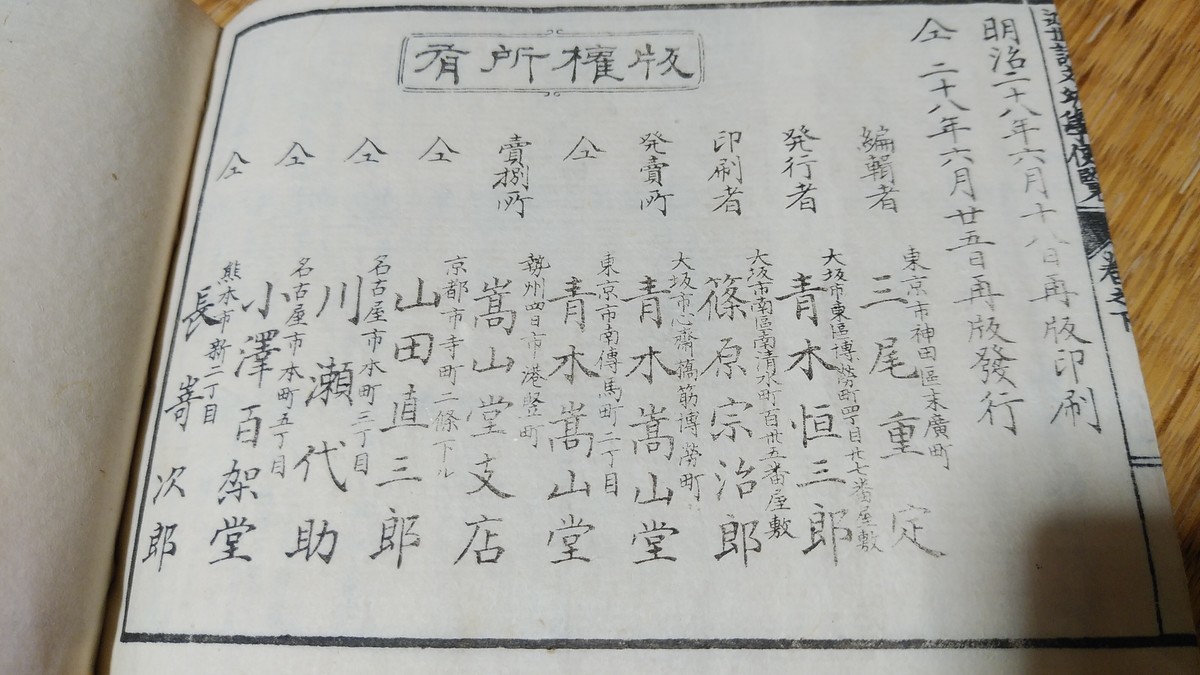 明治二十八年六月十八日再版印刷
仝 二十八年六月廿五日再版發行
版權所有
編輯者
東京市神田區末廣町
三尾重定
発行者
大坂市東區博労町四丁目廿七番屋敷
青木恒三郎
印刷者
大坂市南區南清水町百廿五番屋敷
篠原宗治郎
発賣所
大坂市心齋橋筋博労町
青木嵩山堂
仝
東京市南傳馬町二丁目
青木嵩山堂
賣捌所
勢州四日市港竪町
嵩山堂支店
仝
京都市寺町二條下ル
山田直三郎
仝
名古屋市本町三丁目
川瀬代助
仝
名古屋市本町五丁目
小澤百架堂
仝
熊本市新二丁目
長嵜次郎
卷之下